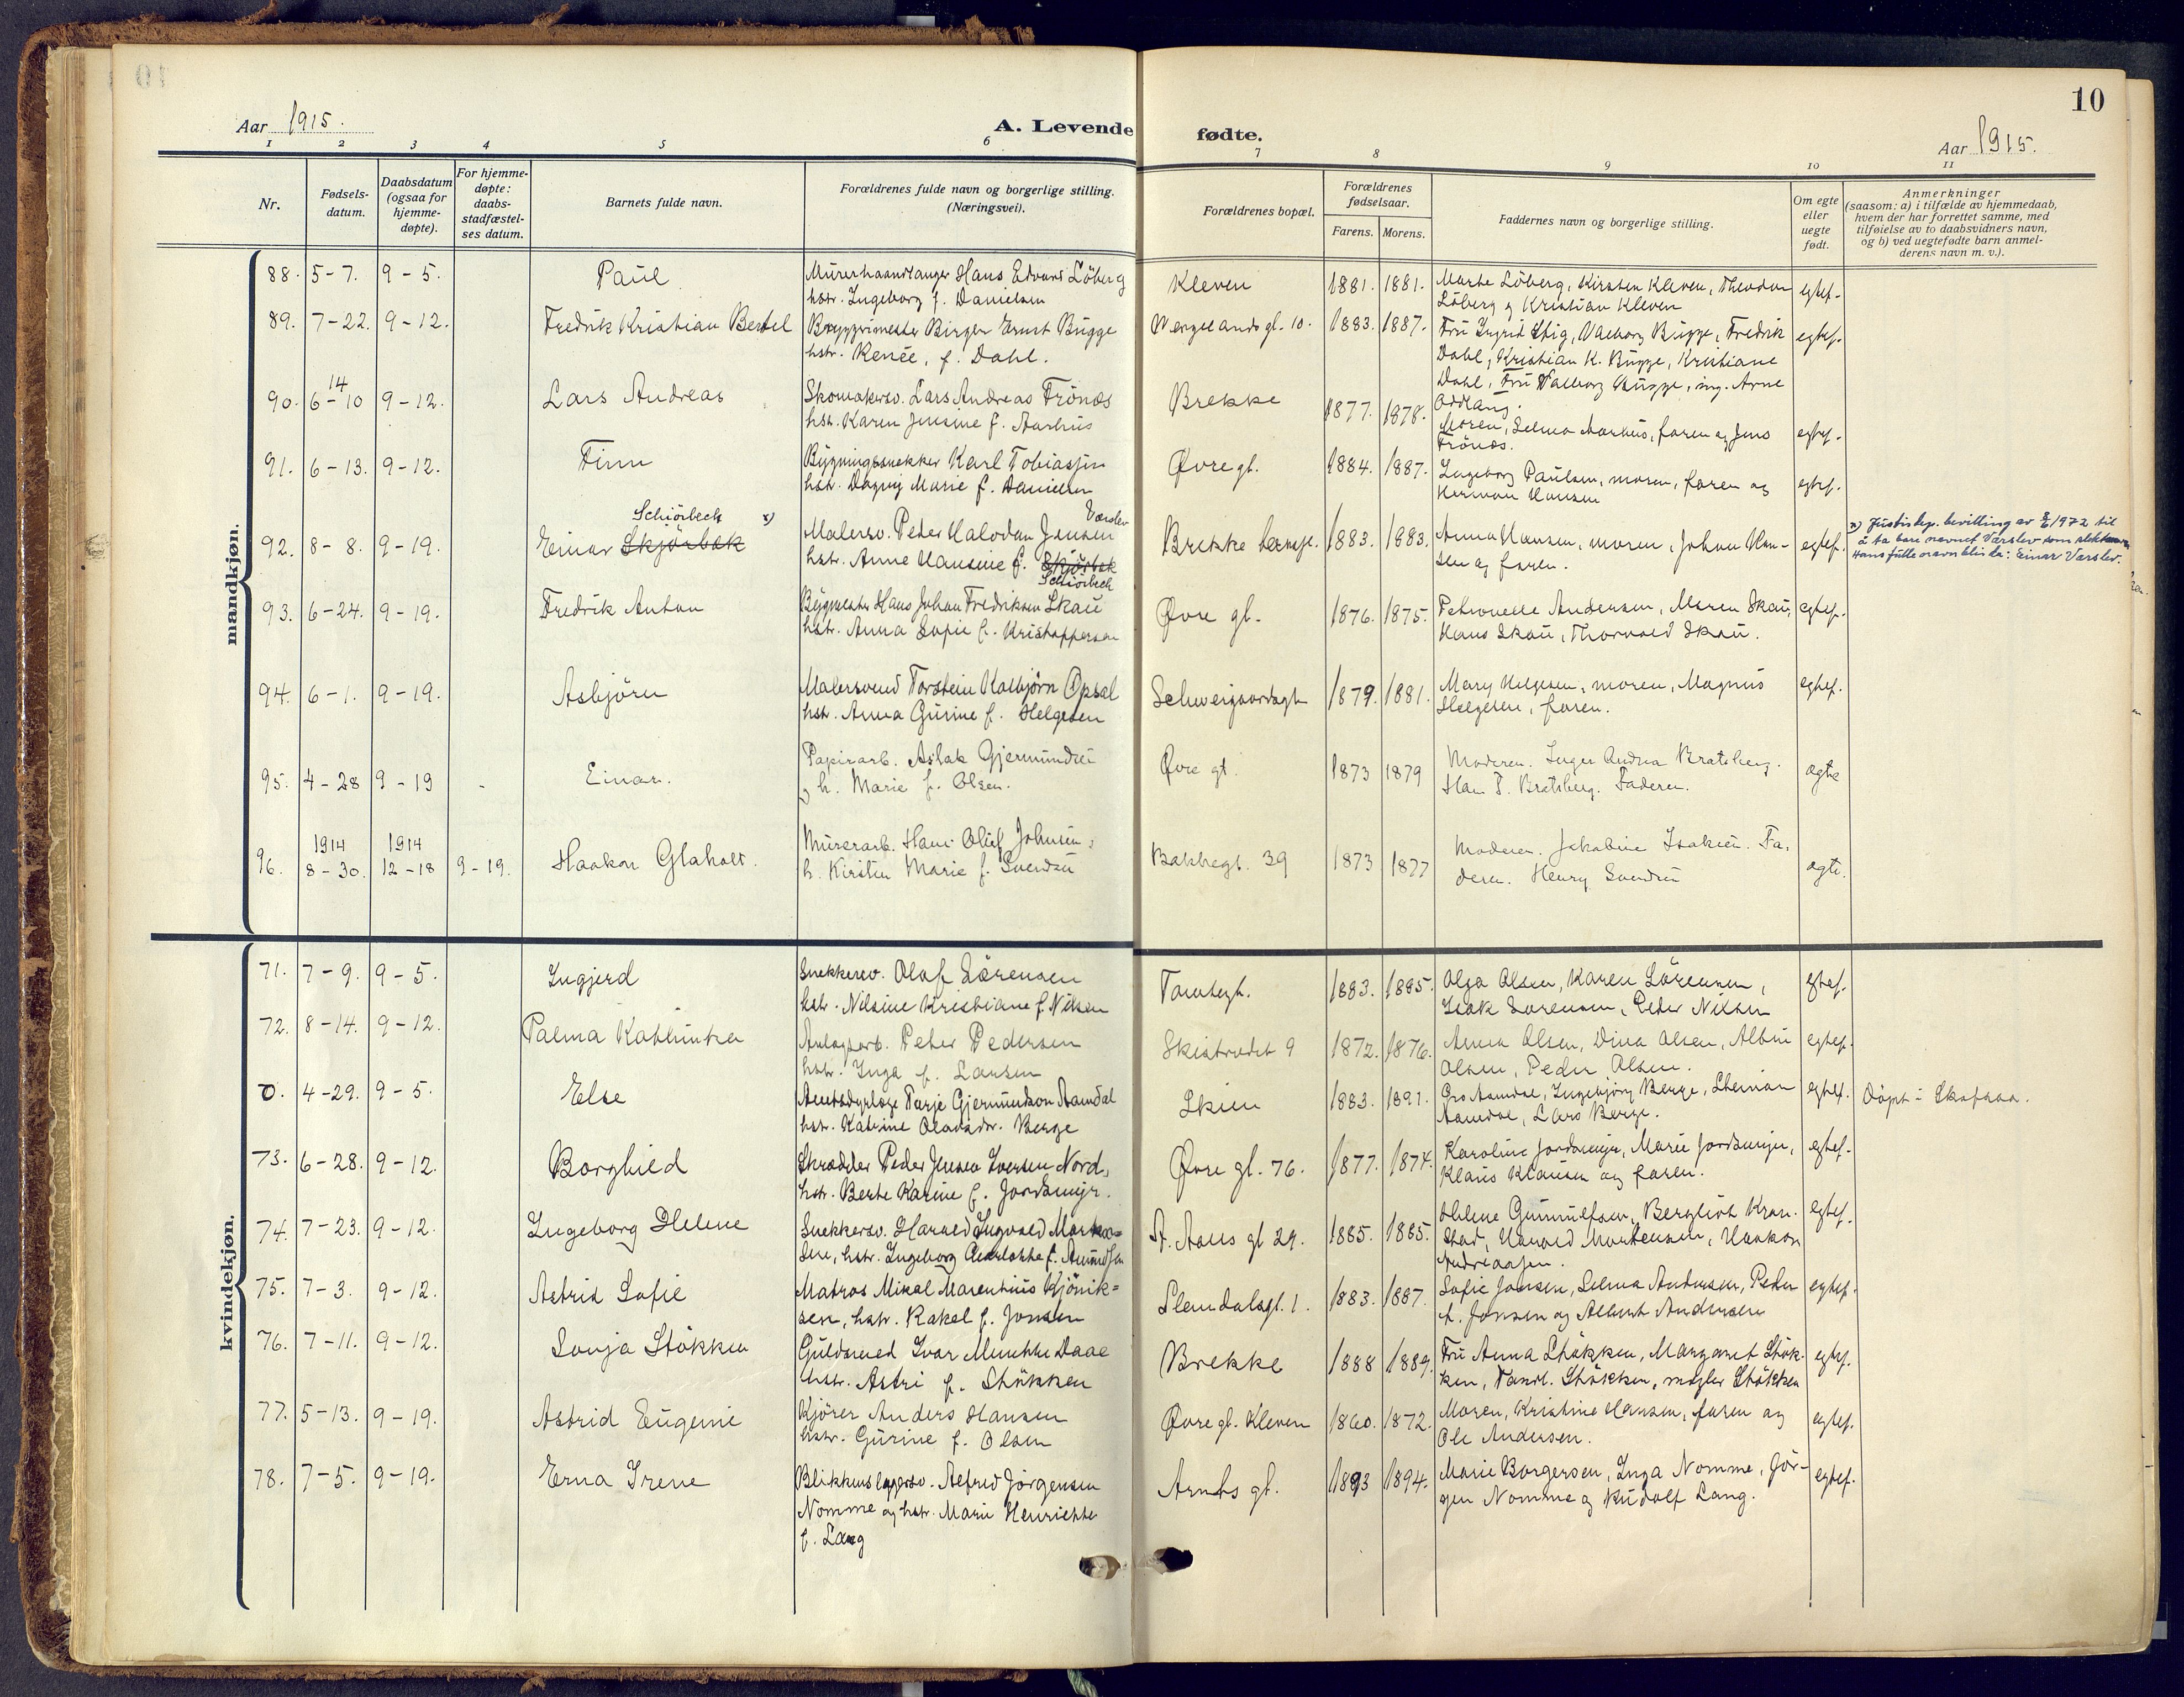 10
Aar 1915.
A. Levende fødte.
Aar 1915.
1 2 3 4 5 6 7 8 9 10 11
Nr.
Fødsels-
datum.
Daabsdatum
(ogsaa for
hjemme-
døpte).
For hjemme-
døpte:
daabs-
stadfæstel-
ses datum.
Barnets fulde navn.
Forældrenes fulde navn og borgerlige stilling.
(Næringsvei).
Forældrenes bopæl.
Forældrenes
fødselsaar.
Farens. Morens.
Faddernes navn og borgerlige stilling.
Om egte
eller
uegte
født.
Anmerkninger
(saasom: a) i tilfælde av hjemmedaab,
hvem der har forrettet samme, med
tilføielse av to daabsvidners navn,
og b) ved uegtefødte barn anmel-
derens navn m. v.).
mandkjøn.
88. 5-7. 9-5. Paul Murerhaandlanger Hans Edvard Löberg Kleven 1881. 1881. Marthe Löberg, Kirsten Kleven, Theodor egtef.
hstr. Ingeborg f. Danielsen Löberg og Kristian Kleven
89. 7-22. 9-12. Fredrik Kristian Bertel Bryggerimester Birger Ernst Bugge Wergelandsgt. 10. 1883. 1887. Fru Ingrid Stig, Valborg Bugge, Fredrik egtef.
hstr. Renée, f. Dahl. Dahl, Kristian K. Bugge, Kristiane
Dahl, Fru Valborg Bugge, ing. Arne
Oddlaug.
14
90. 6-10 9-12. Lars Andreas Skomakersv. Lars Andreas Trönæs Brekke 1877. 1878. Moren, Selma Aarhus, faren og Jens egtef.
hstr. Karen Jensine f. Aarhus Trönæs.
91. 6-13. 9-12. Finn Bygningssnekker Karl Tobiassen Øvregt. 1884. 1887. Ingeborg Paulsen, moren, faren og egtef.
hstr. Dagny Marie f. Danielsen Herman Hansen
Schiörbech x) Værslev
92. 8-8. 9-19. Einar Skjörbæk Malersv. Peder Halvdan Jensen Brekke 1883. 1883. Anna Hansen, moren, Johan Han- egtef.
hstr. Anne Hansine f. Skjörbek sen og faren.
Schiörbech
x) Justisdep. bevilling av 1972 til
å ta bare navnet Værslev som
Hans fulle navn blir da: Einar Værslev.
93. 6-24. 9-19. Fredrik Anton Bygmester Hans Johan Fredriksen Skau Øvre gt. 1876. 1875. Petronelle Andersen, Maren Skau, egtef.
hstr. Anna Sofie f. Kristoffersen Hans Skau, Thorvald Skau.
94. 6-1. 9-19. Asbjörn Malersvend Torstein Kolbjörn Opsal Schweigaardsgt. 1879. 1881. Mary Helgesen, moren, Magnus egtef.
hstr. Anna Gurine f. Helgesen Helgesen, faren.
95. 4-28 9-19 - Einar. Papirarb. Aslak Gjermundsen Øvre gt. 1873 1879 Moderen. Inger Andrea Bratsberg. ægte
og h. Marie f. Olsen. Hans P. Bratsberg. Faderen.
1914 1914
96. 8-30. 12-18 9-19. Haakon Glaholt. Murerarb. Hans Oluf Johnsen, Bakkegt. 39 1873 1877 Moderen. Jakobine Isaksen. Fa- ægte.
h. Kirstin Marie f. Svendsen deren. Henry Svendsen
kvindekjøn.
71. 7-9. 9-5. Ingjerd Snekkersv. Olaf Sörensen Tomtegt. 1883. 1885. Olga Olsen, Karen Sörensen, egtef.
hstr. Nilsine Kristiane f. Nilsen Isak Sörensen, Peder Nilsen
72. 8-14. 9-12. Palma Kathinka Anlagsarb. Peter Pedersen 9 1872. 1876. Anna Olsen, Dina Olsen, Albin egtef.
hstr. Inga f. Larsen Olsen, Peder Olsen.
0. 4-29. 9-5. Else Amtsdyrlæge Tarje Gjermundson Aamdal Skien 1883. 1891. Gro Aamdal, Ingebjörg Berge, Steinar egtef. Döpt i Skafsaa.
hstr. Katrine Olavsdtr. Berge Aamdal, Lars Berge.
73. 6-28. 9-12. Borghild Skrædder Peder Jensen Iversen Nord, Øvre gt. 76. 1877. 1874. Karoline Jordsmyr, Marie Jordsmyr, egtef.
hstr. Berte Karine f. Jordsmyr. Klaus Klausen og faren.
74. 7-23. 9-12. Ingeborg Helene Snekkersv. Harald Ingvald Morten- A. Aalls gt 29. 1885. 1885. Helene Gunnulfsen, Bergliot Kron- egtef.
sen, hstr. Ingeborg Charlotte f. Amundsen stad, Harald Mortensen, Haakon
Andreassen.
75. 7-3. 9-12. Astrid Sofie Matros Mikal Marentius Kjönik- Slemdalsgt. 1. 1883. 1887. Sofie Jonsen, Selma Andersen, Peder egtef.
sen, hstr. Rakel f. Jonsen A. Jonsen og Albert Andersen
76. 7-11. 9-12. Sonja Stökken Guldsmed Ivar Munthe Daae Brekke 1888 1889. Fru Anna Stökken, Margaret Stök- egtef.
hstr. Astri f. Stökken ken, Tandl. Stökken, megler Stökken
77. 5-13. 9-19. Astrid Eugenie Kjörer Anders Hansen Øvre gt. Kleven 1860. 1872. Moren, Kristine Hansen, faren og egtef.
hstr. Gurine f. Olsen Ole Andersen.
78. 7-5. 9-19. Erna Irene Blikkenslagersv. Alfred Jörgensen Arnts gt. 1893 1894. Marie Borgersen, Inga Nomme, Jör- egtef.
Nomme og hstr. Marie Henriette gen Nomme og Rudolf Lang.
f. Lang